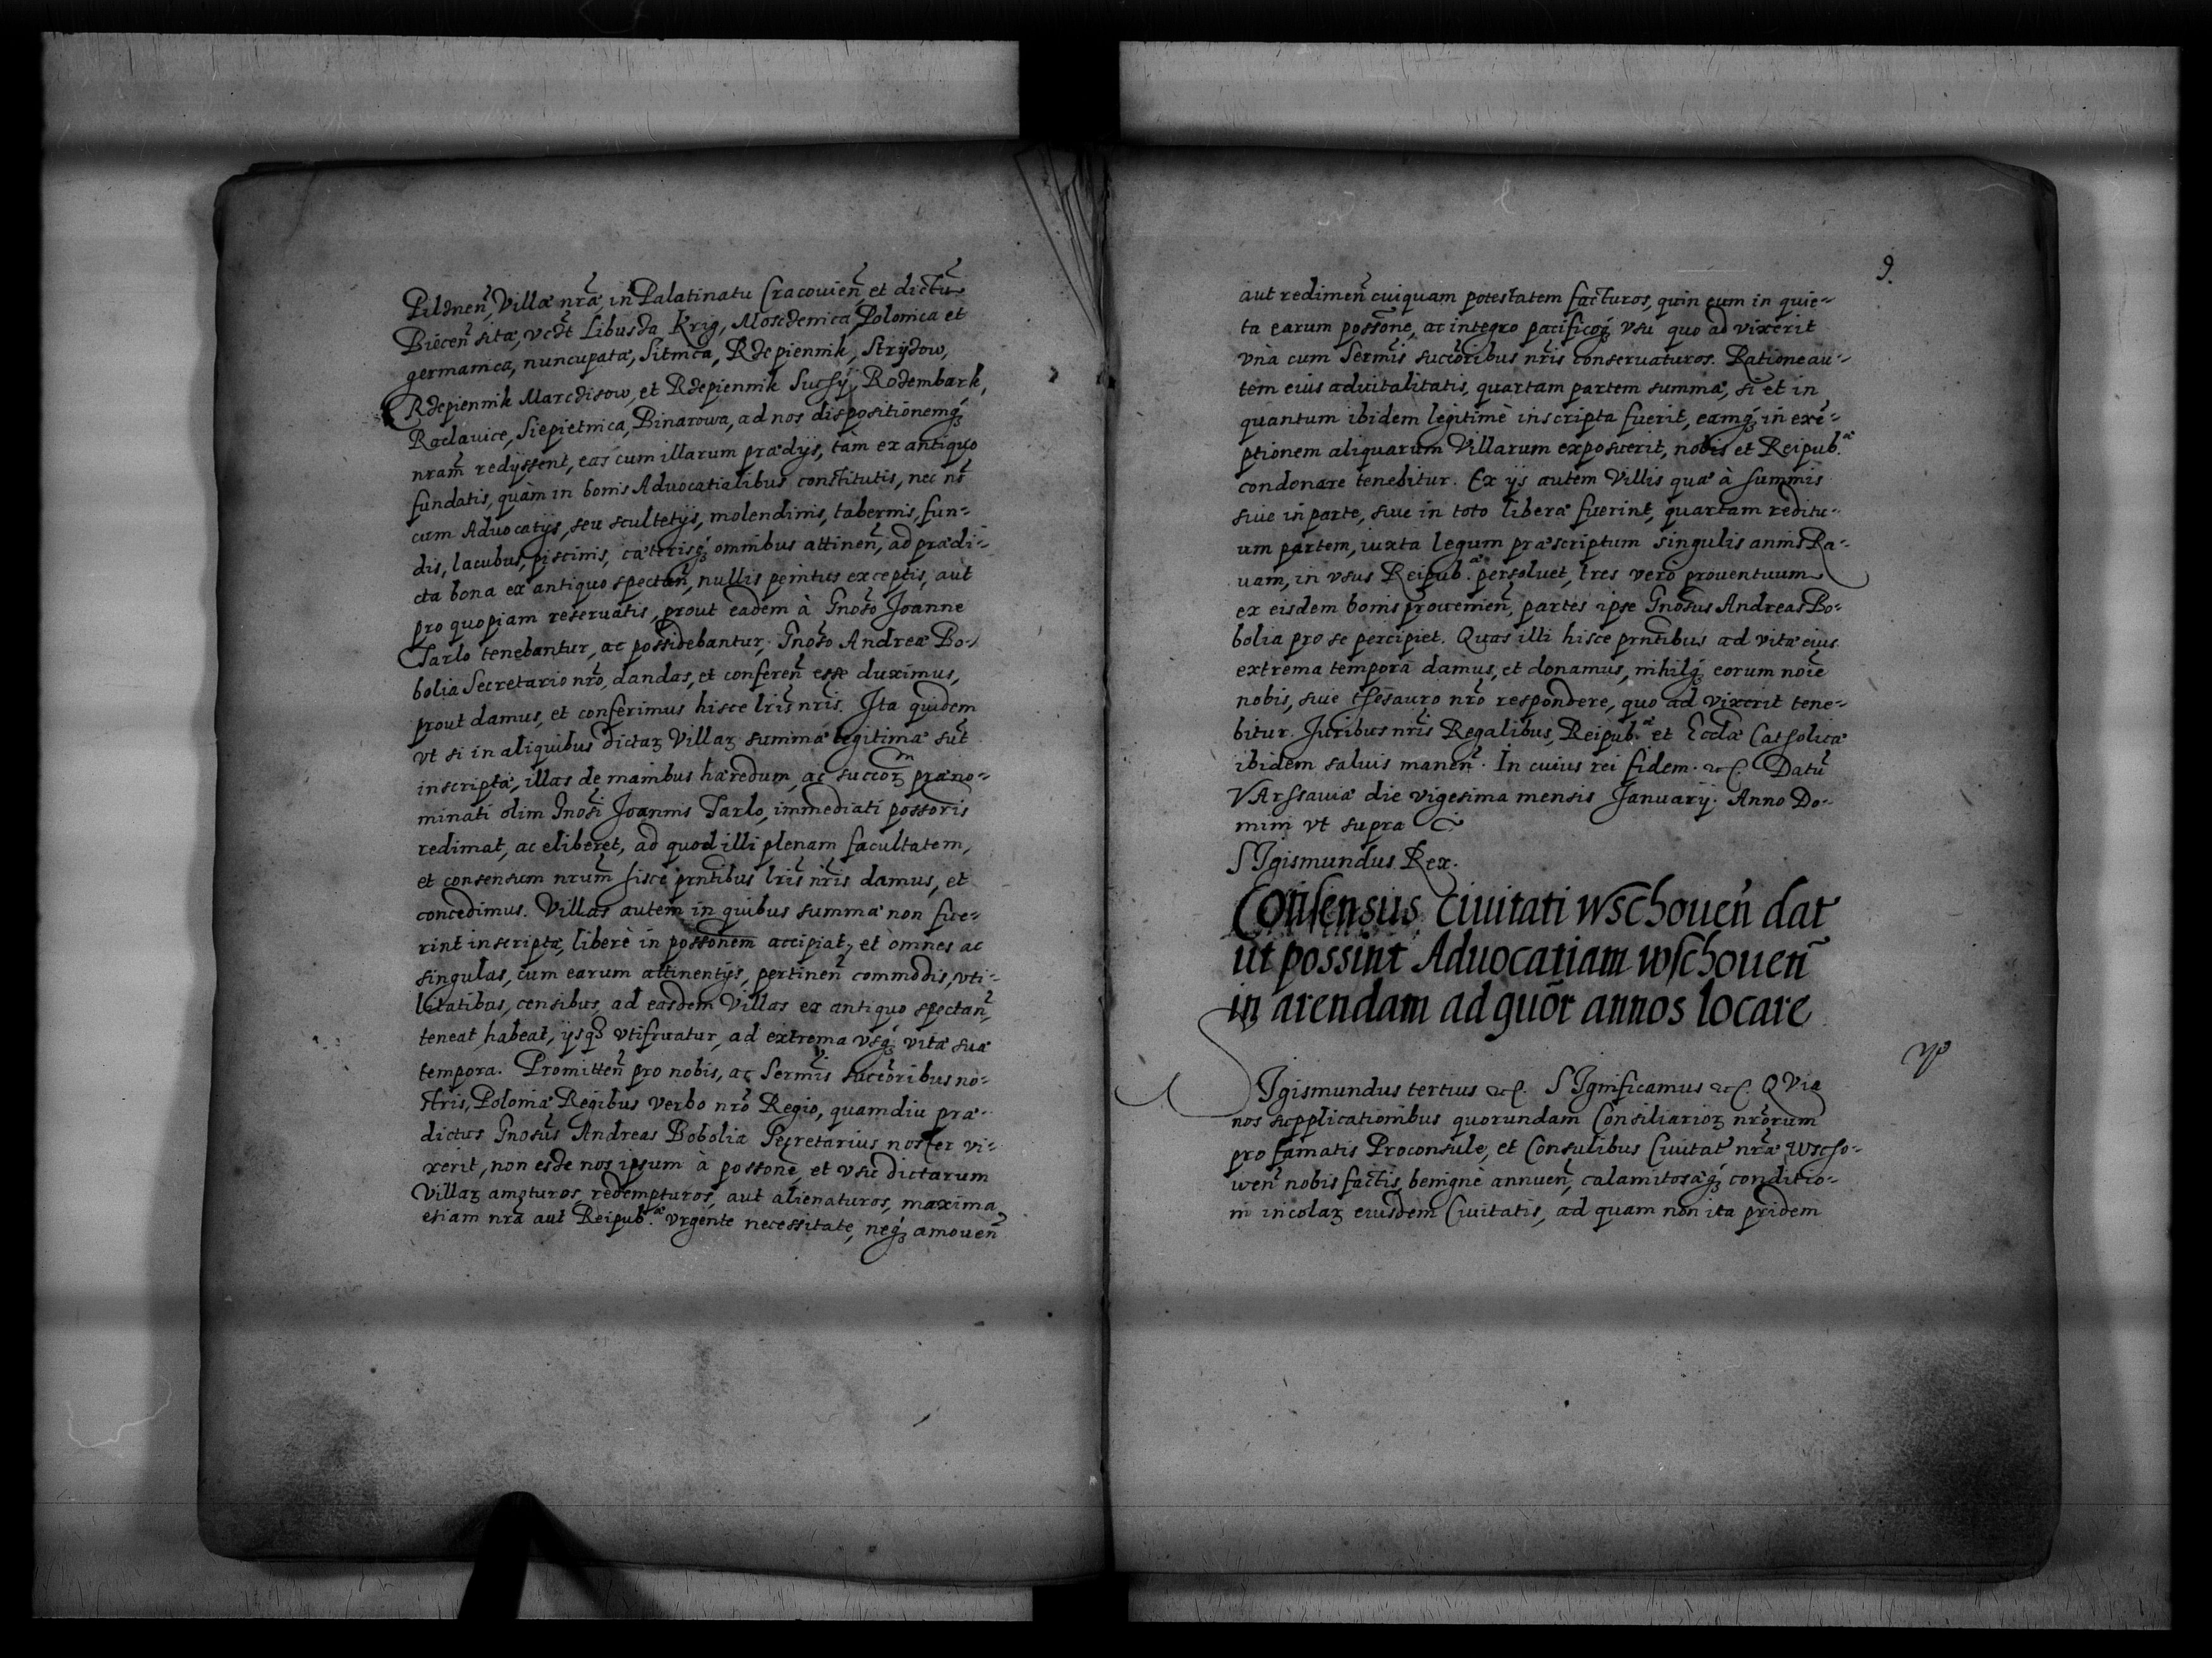 Pilznen̄, Villæ nr̄æ, in Palatinatu Cracouien̄, et dictū
Biecen̄ sitæ, vcdt Libusza Krig, Moszczenica Polonica et
germanica, nuncupatæ, Sitnica, Rzepiennik, Strzyzow,
Rzepiennik Marcziszow, et Rzepiennik Suchy, Rozembark,
Raclauice, Siepietnica, Binarowa, ad nos dispositionemq́;
nram̄ redyssent, eas cum illarum prædijs, tàm ex antiquo
fundatis, quàm in bonis Aduocatialibus constitutis, nec nō
cum Aduocatijs, seu scultetijs, molendinis, tabernis, fun-
dis, lacubus, piscinis, cæterisq́; omnibus attinen̄, ad prædi-
cta bona ex antiquo spectan̄, nullis penitus exceptis, aut
pro quopiam reseruatis, prout eadem à Gnoso Joanne
Tarlo tenebantur, ac possidebantur; Gnoso Andreæ Bo-
bolia Secretario nrō, dandas, et conferen̄ esse duximus,
prout damus, et conferimus hisce lris̄ nris̄. Ita quidem
vt si in aliquibus dictaꝝ Villaꝝ summæ legitimæ sūt
inscriptæ, illas de manibus hæredum, ac succoꝝ præno-
minati olim Gnosi Joannis Tarlo, immediati possoris
redimat, ac eliberet, ad quod illi plenam facultatem,
et consensum nrum̄ hisce prntibus lris̄ nris̄ damus, et
concedimus. Villas autem in quibus summæ non fue-
rint inscriptæ, liberè in possonem accipiat, et omnes ac
singulas, cum earum attinentijs, pertinen̄ commodis, vti-
litatibus, censibus, ad easdem Villas ex antiquo spectan̄,
teneat, habeat, ijsq́; vtifruatur, ad extrema vsq́; vitæ suæ
tempora. Promitten̄ pro nobis, ac Sermis succoribus no-
stris, Poloniæ Regibus verbo nrō Regio, quamdiu præ-
dictus Gnosus Andreas Bobolia Secretarius noster vi-
xerit, non esse nos ipsum à possone, et vsu dictarum
Villaꝝ ampturos, redempturos, aut alienaturos, maxima
etiam nrā aut Reipub.æ vrgente necessitate, neq́; amouen̄
9.
aut redimen̄ cuiquam potestatem facturos, quin eum in quie-
ta earum possone, ac integro pacificoq́; vsu quo ad vixerit
vnà cum Sermis succoribus nris̄ conseruaturos. Ratione au-
tem eius aduitalitatis, quartam partem summæ, si et in
quantum ibidem legitimè inscripta fuerit, eamq́; in exe-
ptionem aliquarum Villarum exposuerit, nobis et Reipub.æ
condonare tenebitur. Ex ijs autem Villis quæ à summis
siue in parte, siue in toto liberæ fuerint, quartam reditu-
um partem, iuxta legum præscriptum singulis annis Ra-
uam, in vsus Reipub.æ persoluet, tres verò prouentuum
ex eisdem bonis prouenien̄, partes ipse Gnosus Andreas Bo-
bolia pro se percipiet. Quas illi hisce prntibus ad vitæ eius
extrema tempora damus, et donamus, nihilq́; eorum noīe
nobis, siue thesauro nrō respondere, quo ad vixerit tene-
bitur. Juribus nris̄ Regalibus, Reipub.æ et Ecclæ Catholicæ
ibidem saluis manen̄. In cuius rei fidem. &c. Datū
VArssauiæ die vigesima mensis January. Anno Do-
mini vt supra
SIgismundus Rex.
Consensus Ciuitati Wschouen̄ dat
ut possint Aduocatiam wschouen̄
in arendam ad quōr annos locare
SIgismundus tertius &c. SIgnificamus &c. QVia
nos supplicationibus quorundam Consiliarioꝝ nrōrum
pro famatis Proconsule, et Consulibus Ciuitat nrǣ Wscho-
wen̄ nobis factis, benignè annuen̄, calamitosæq́; conditio-
ni incolaꝝ eiusdem Ciuitatis, ad quam non ita pridem